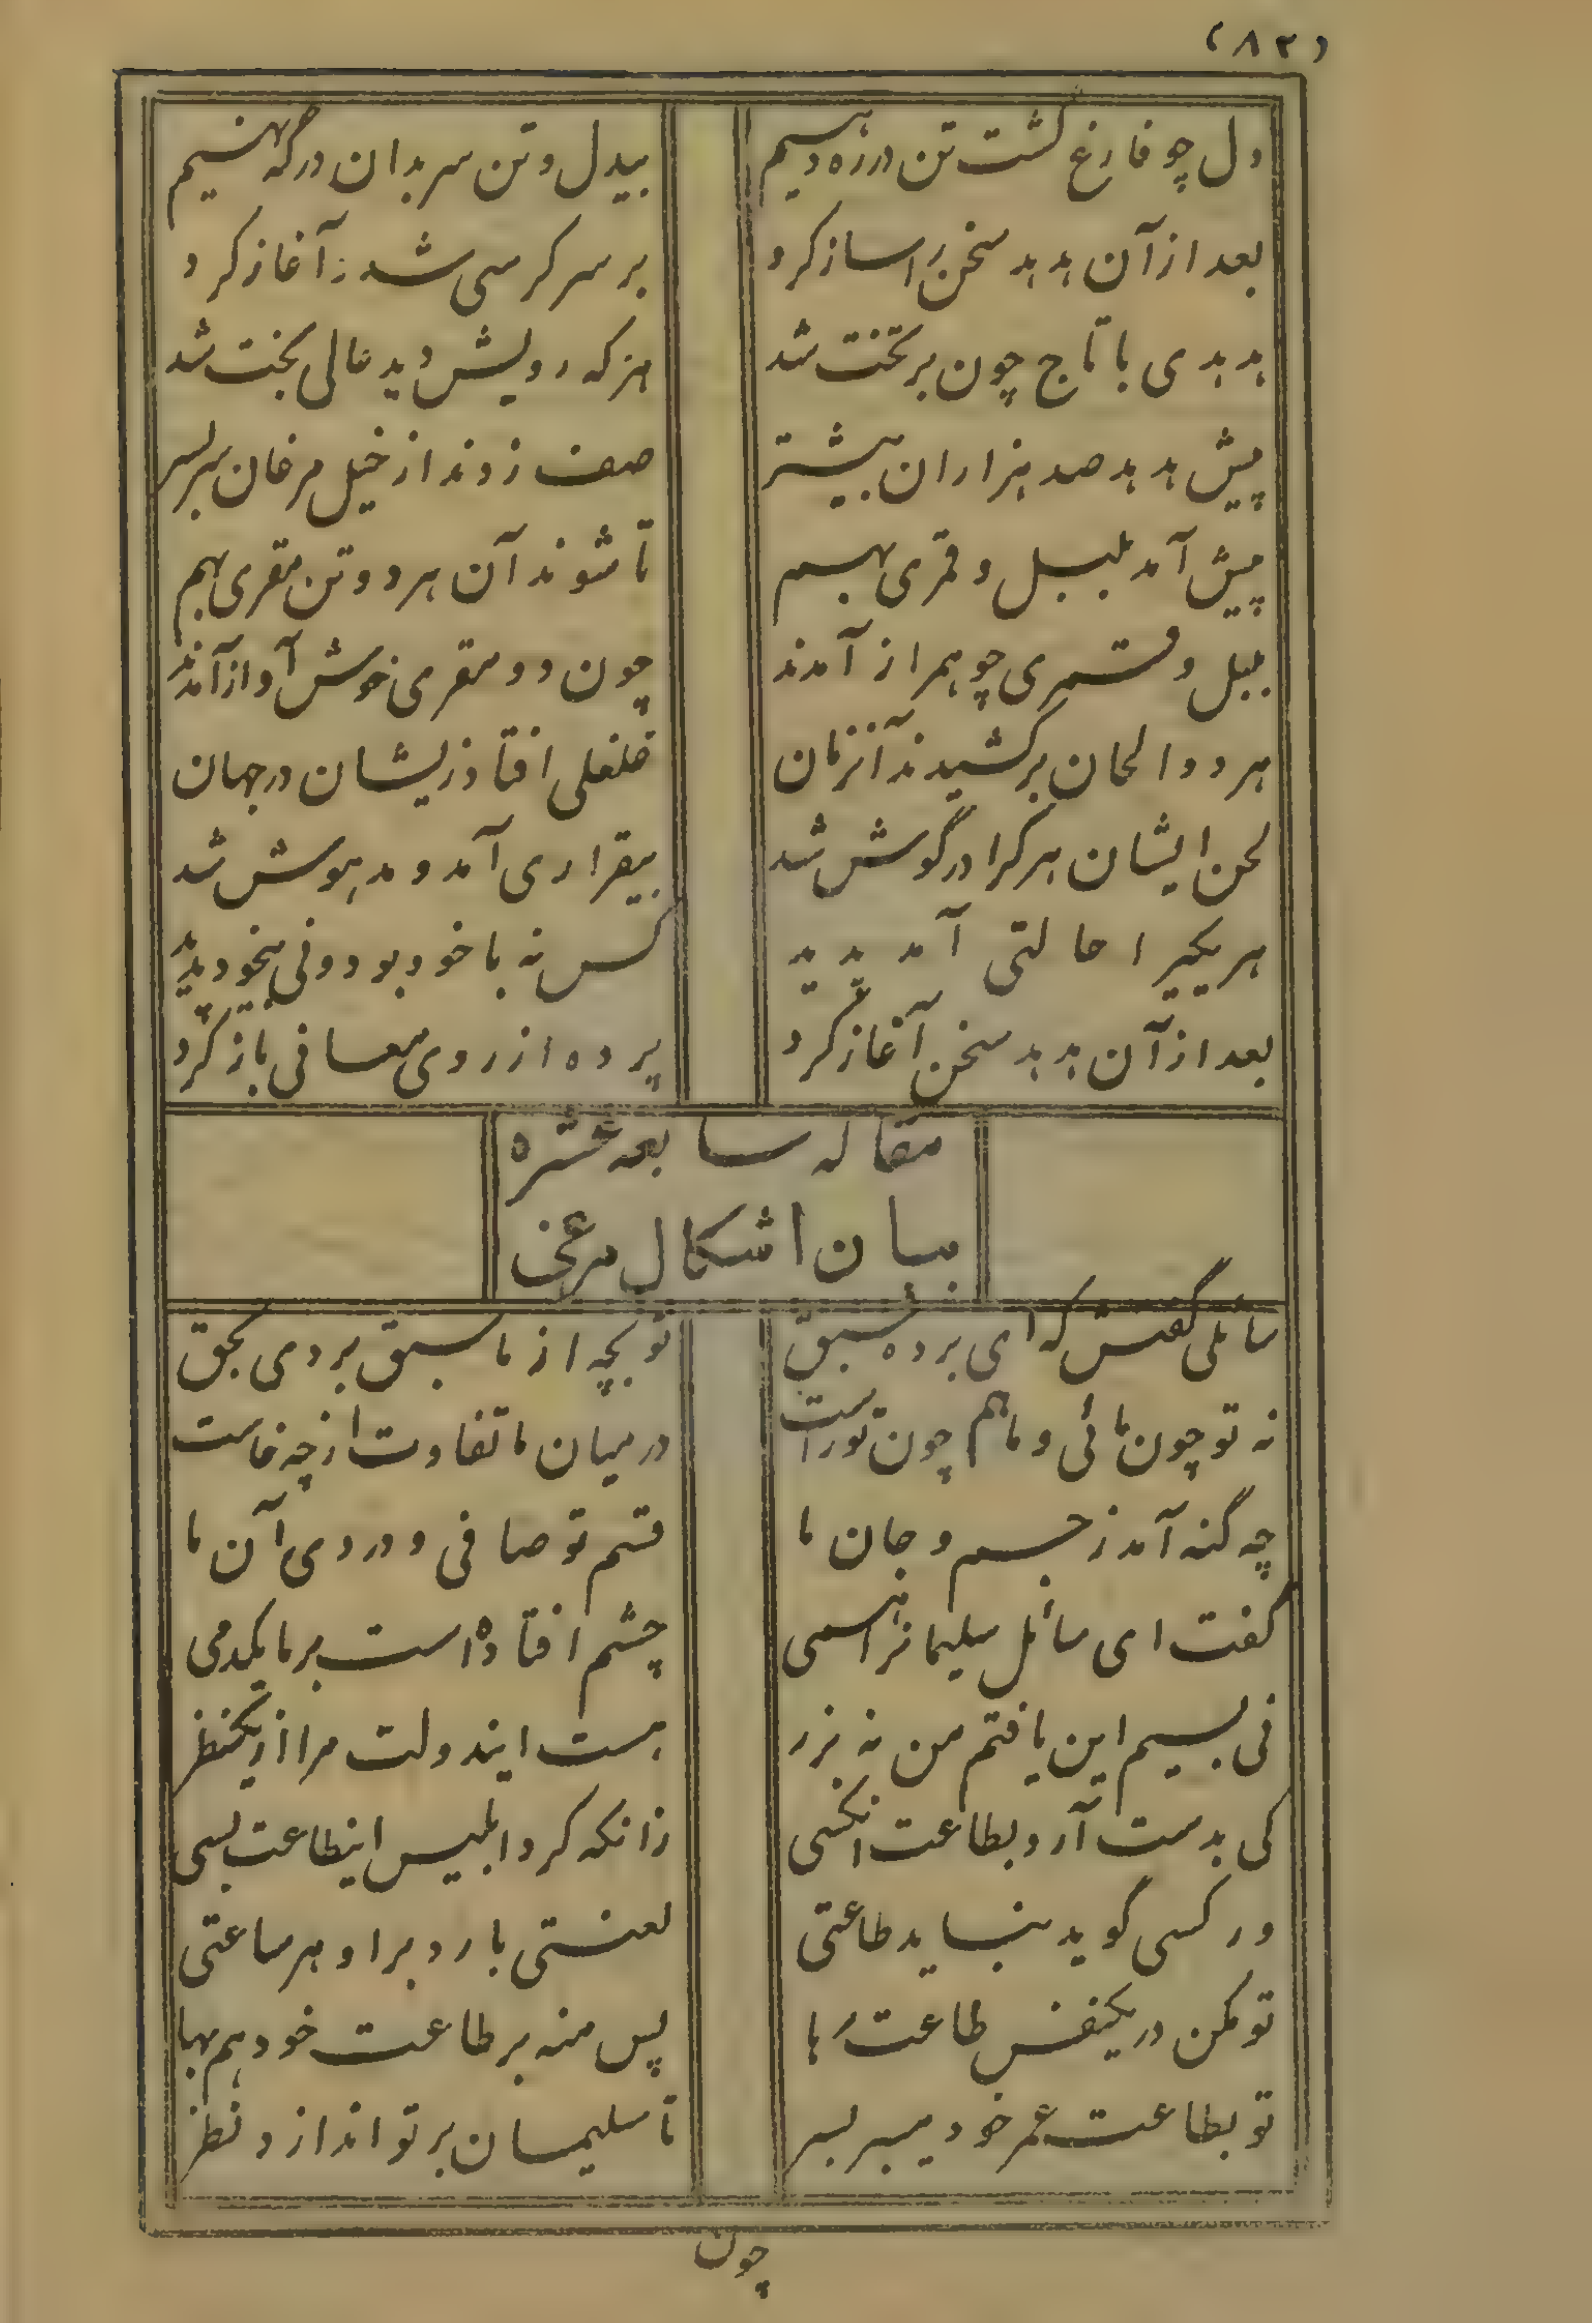 (۸۲)
دل چو فارغ گشت تن در ره دهیم
بیدل و تن سر بدان درگه نهیم
بعد از آن هدهد سخن را ساز کرد
بر سر کرسی شد و آغاز کرد
هدهدی با تاج چون بر تخت شد
هر که رویش دید عالی بخت شد
پیش هدهد صد هزاران بیشتر
صف زدند از خیل مرغان سربسر
پیش آمد بلبل و قمری بهم
تا شوند آن هر دو تن مقری بهم
بلبل و قمری چو همراز آمدند
چون دو مقری خوش آواز آمدند
هر دو الحان برکشیدند آنزمان
غلغلی افتاد زیشان در جهان
لحن ایشان هر کرا در گوش شد
بیقراری آمد و مدهوش شد
هر یکیرا حالتی آمد پدید
کس نه با خود بود و نی بیخود پدید
بعد از آن هدهد سخن آغاز کرد
پرده از روی معانی باز کرد
مقاله سابعه عشره
بیان اشکال مرغی
سائلی گفتش که ای برده سبق
تو بچه از ما سبق بردی بحق
نه تو چون مائی و ما هم چون تو راست
در میان ما تفاوت از چه خاست
چه گنه آمد ز جسم و جان ما
قسم تو صافی و دردی آن ما
گفت ای سائل سلیمانرا همی
چشم افتاده است بر ما یکدمی
نی بسیم این یافتم من نه بزر
هست ایندولت مرا از یکنظر
کی بدست آرد بطاعت انکسی
زانکه کرد ابلیس اینطاعت بسی
ور کسی گوید بنباید طاعتی
لعنتی بارد بر او هر ساعتی
تو مکن در یکنفس طاعت رها
پس منه بر طاعت خود هم بها
تو بطاعت عمر خود میبر بسر
تا سلیمان بر تو اندازد نظر
چون